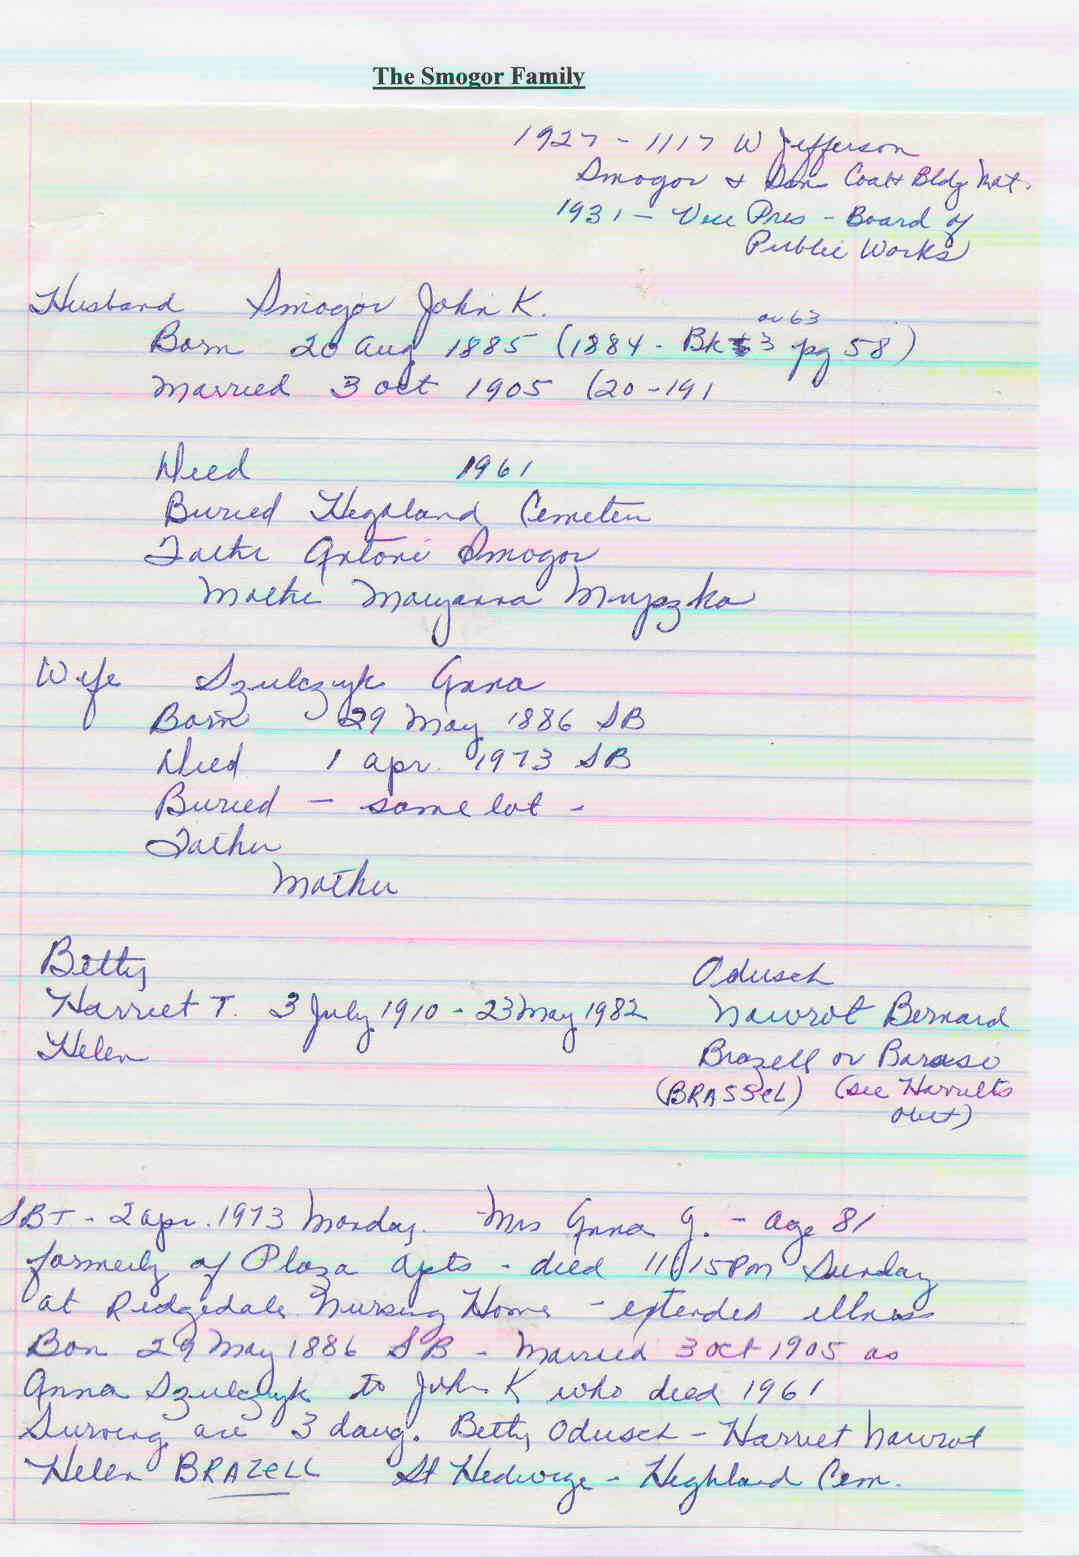 The Smogor Family
1927 - 1117 W Jefferson
Smogor & Son Coal & Bldg Mat.
1931 - Vice Pres - Board of
Public Works
Husband Smogor John K.
or 63
Born 20 Aug 1885 (1884 - Bk 3 pg 58)
Married 3 Oct 1905 (20-191
Died 1961
Buried Highland Cemetery
Father Antoni Smogor
Mother Maryanna
Wife Szulczyk Anna
Born 29 May 1886 SB
Died 1 Apr. 1973 SB
Buried - same lot -
Father
Mother
Betty Odusch
Harriet T. 3 July 1910 - 23 May 1982 Nawrot Bernard
Helen Brazell or
(BRASSEL) (see Harriets
obit)
SBT - 2 Apr. 1973 Monday. Mrs Anna G. - age 81
formerly of Plaza Apts - died 11:15 PM Sunday
at Ridgedale Nursing Home - extended illness
Born 29 May 1886 SB - Married 3 Oct 1905 as
Anna Szulczyk to John K who died 1961
Surving are 3 daug. Betty Odusch - Harriet Nawrot
Helen BRAZELL St Hedwige - Highland Cem.